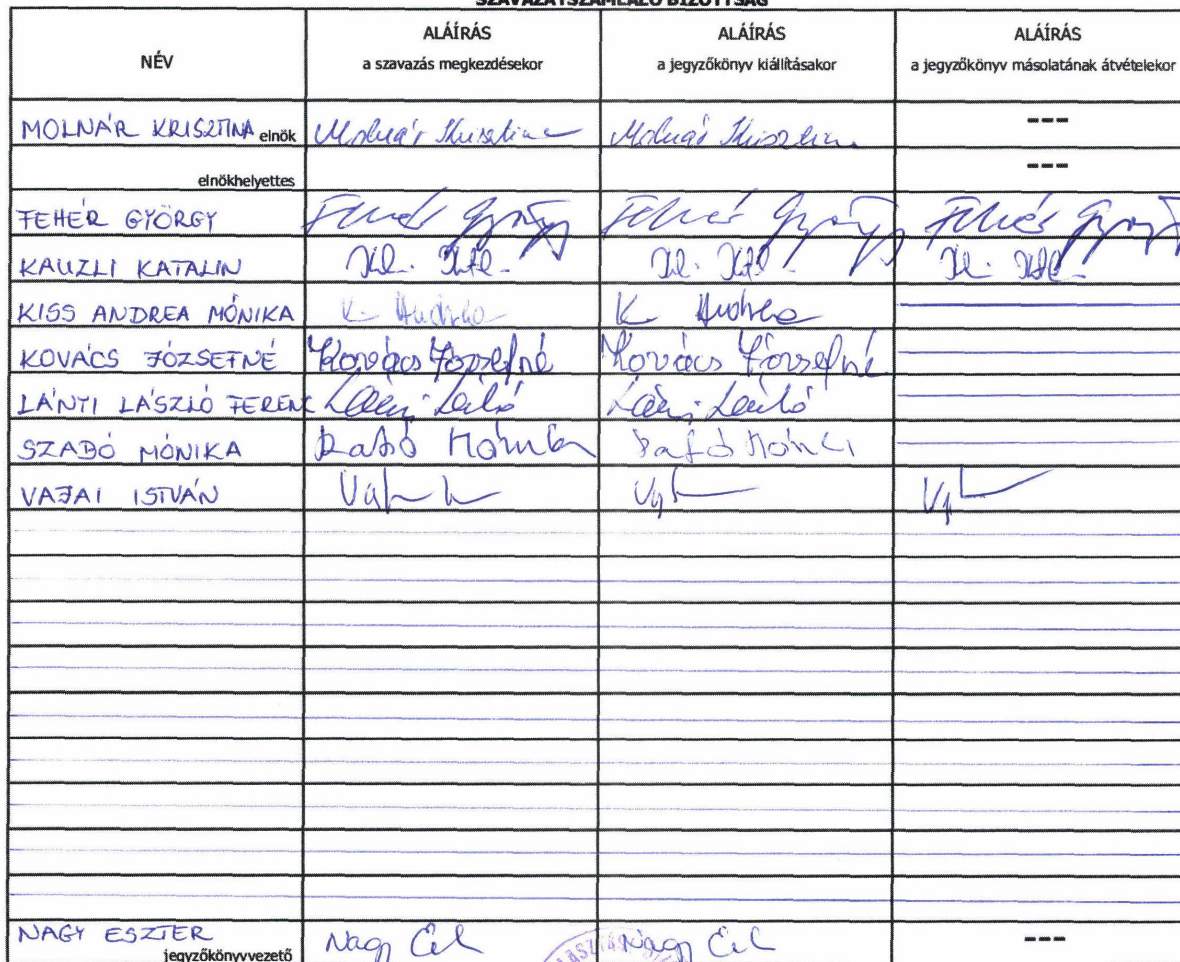 SZAVAZATSZÁMLÁLÓ BIZOTTSÁG
NÉV
ALÁÍRÁS
a szavazás megkezdésekor
ALÁÍRÁS
a jegyzőkönyv kiállításakor
ALÁÍRÁS
a jegyzőkönyv másolatának átvételekor
MOLNÁR KRISZTINA elnök Molnár Krisztina Molnár Krisztina ---
elnökhelyettes ---
FEHÉR GYÖRGY Fehér György Fehér György Fehér György
KAUZLI KATALIN
KISS ANDREA MÓNIKA K Andrea K Andrea
KOVÁCS JÓZSEFNÉ Kovács Józsefné Kovács Józsefné
LÁNYI LÁSZLÓ FERENC
SZABÓ MÓNIKA Szabó Mónika
VAJAI ISTVÁN
NAGY ESZTER jegyzőkönyvvezető Nagy Nagy ---